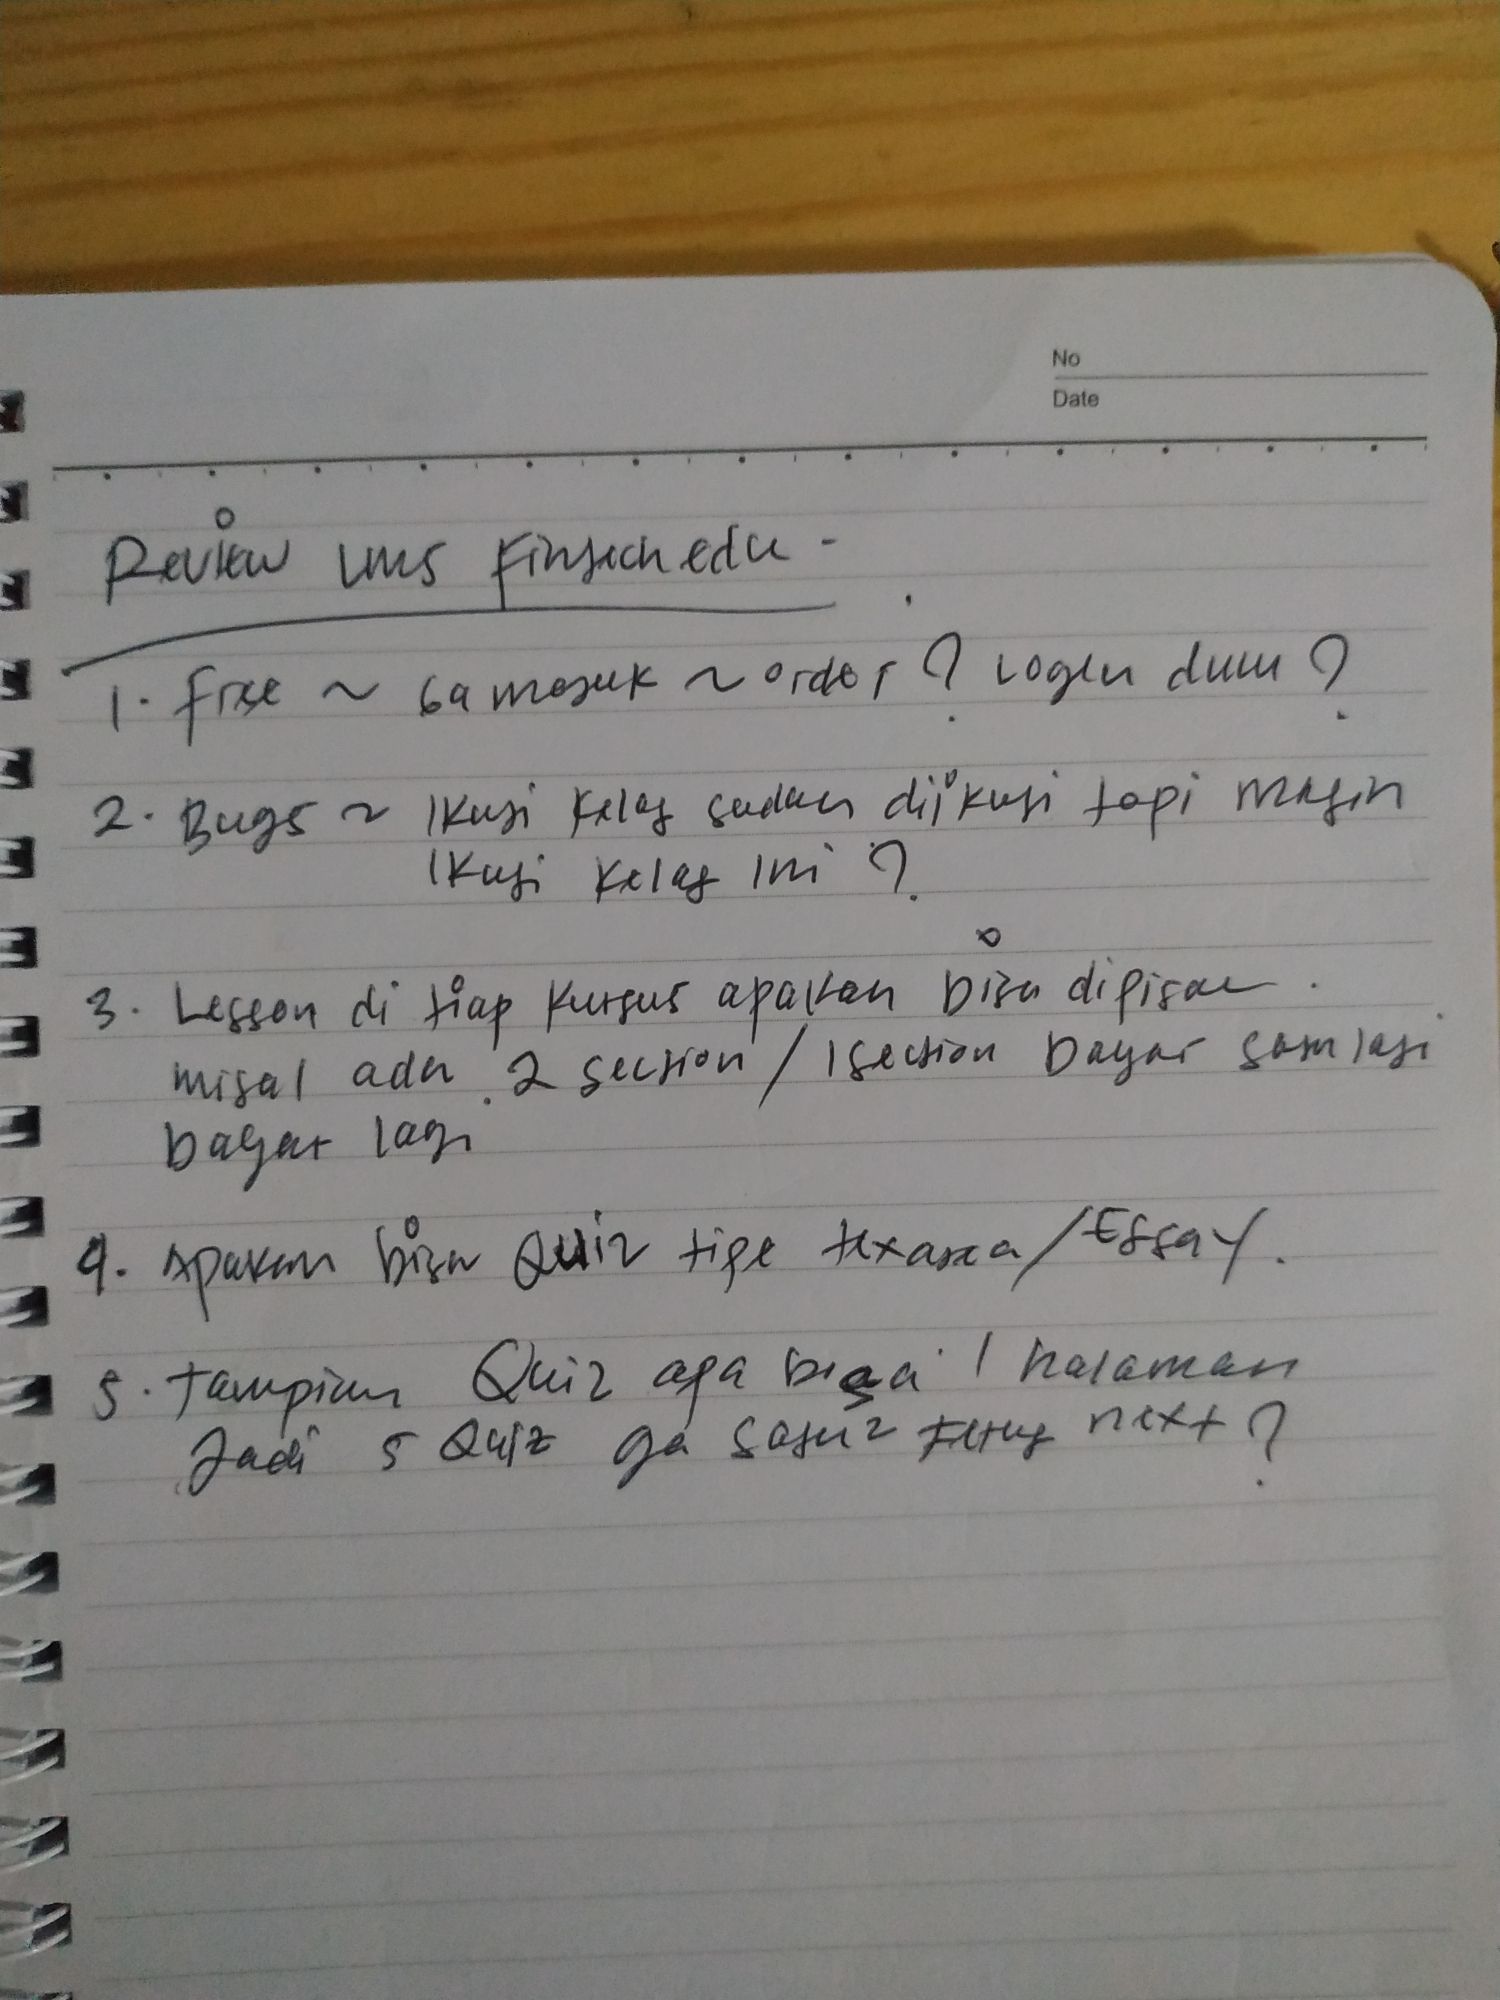 No
Date
Review LMS Fintech edu -
1. free ~ ga masuk ~ order ? Login dulu ?
2. Bugs ~ Ikuti kelas sudah diikuti tapi masih
Ikuti kelas ini ?
3. Lesson di tiap kursus apakah bisa dipisah.
misal ada 2 section / 1 section bayar satu lagi
bayar lagi
4. Apakah bisa Quiz tipe textarea / Essay.
5. Tampilan Quiz apa bisa 1 halaman
Jadi 5 Quiz ga satu2 terus next ?